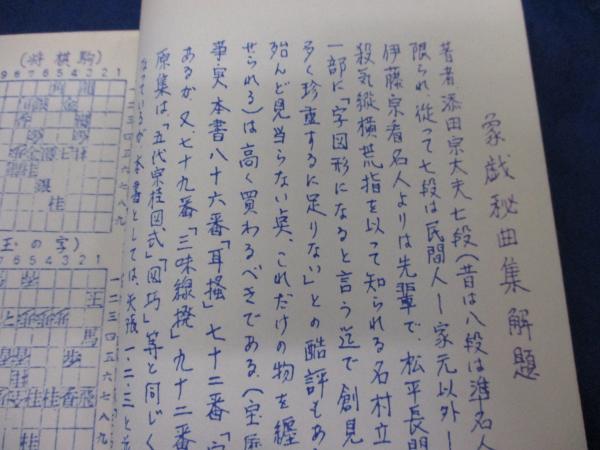 象戯秘曲集解題
著者添田宗太夫七段(昔は八段は準名人
限られ、従って七段は民間人ー家元以外ー
伊藤宗看名人よりは先輩で、松平長門
殺気縦横荒指を以って知られる名村立
一部に「字図形になると言う迄で創見
多く珍重するに足りない」との酷評もあ
殆んど見当らない点、これだけの物を纏
せられる)は高く買わるべきである。(宝暦
事実本書八十六番「耳掻」七十二番「
あるが、又、七十九番「三味線撓」九十二番
原集は、「五代宗桂図式」「図巧」等と同じく
なっているが、本書としては、矢張一、二、三と
(将棋駒)
9 8 7 6 5 4 3 2 1
一二三四五六七八九
銀
桂
玉の字)
7 6 5 4 3 2 1
一二三四五六七八九
王
馬
歩
桂 桂 香 飛
桂